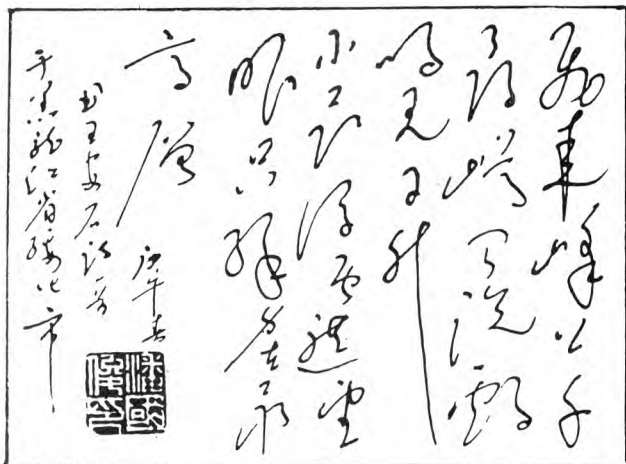 飛来峰上千
尋塔闻说雞
鳴見日升
不畏浮雲遮望
眼只緣身在最
高層
庚午春
书王安石诗
于黑龙江省绥化市